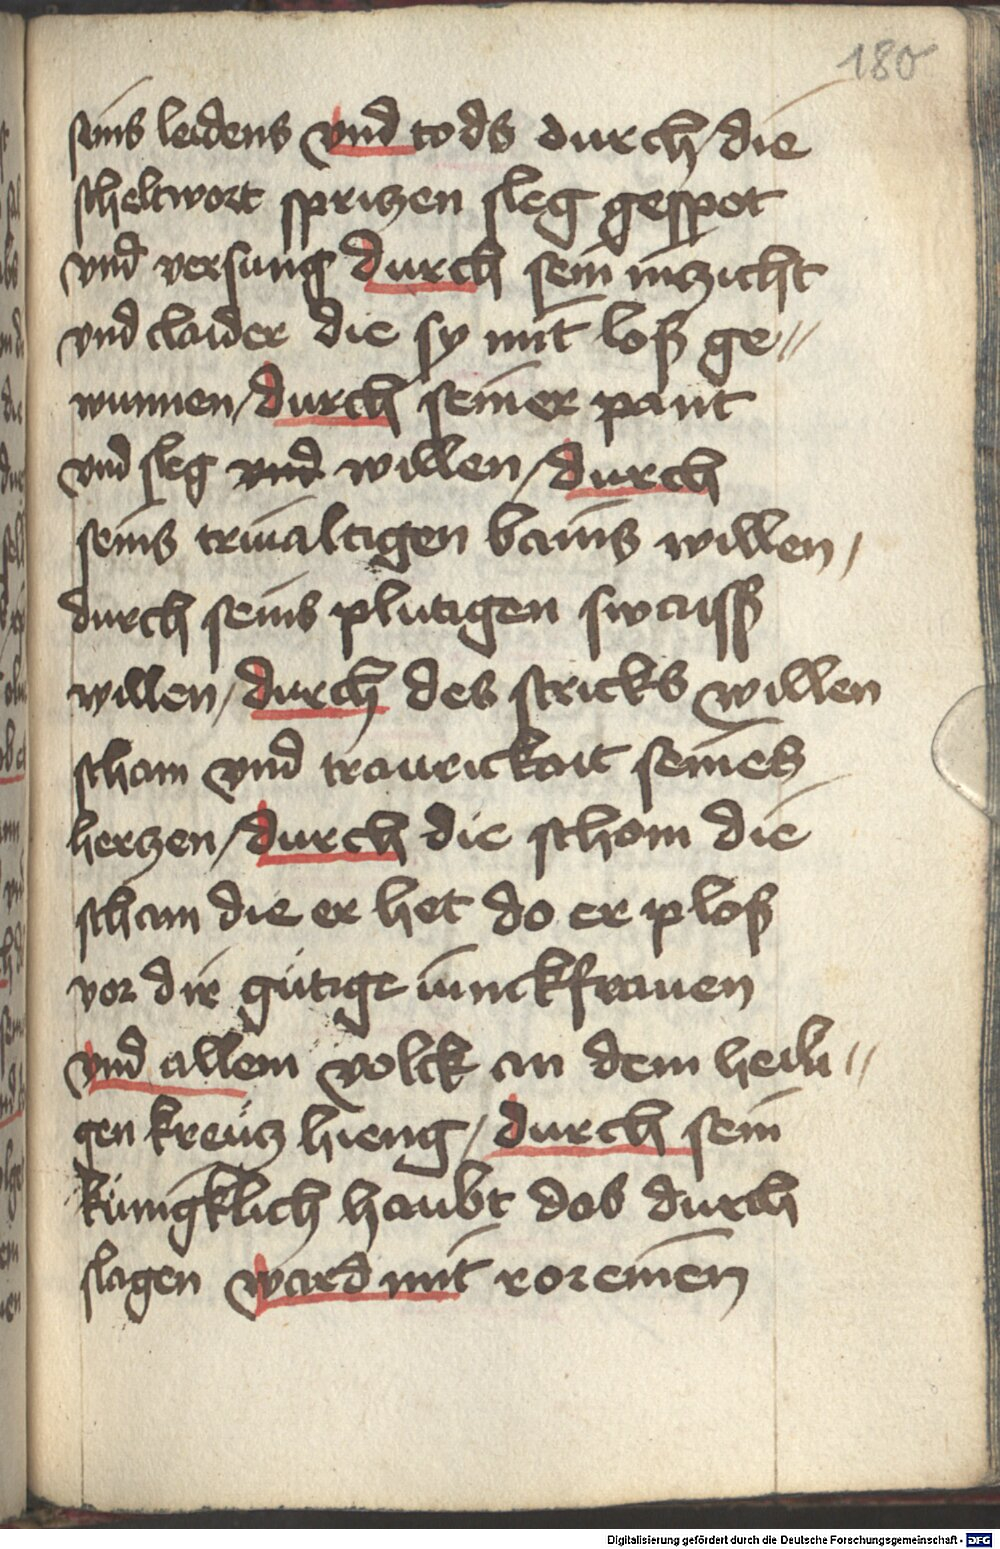 180
seins leidens vnd tods durch / die
scheltwort sprizen sleg gespot
vnd versung durch sein inzicht
vnd claider die sy mit loß ge//
wunnen / durch seiner pant
vnd sleg vnd willen / durch
seins triualtigen bains willen /
durch seins plutigen swaiss
willen / durch des stricks willen
scham vnd traurickait seines
herzen / durch die schom die
scham die er het do er ploß
vor dir gütige iunckfrauen
vnd allem volck an dem heili//
gen kreücz hieng / durch sein
künigklich haubt das durch
slagen ward mit roreinen
Digitalisierung gefördert durch die Deutsche Forschungsgemeinschaft - DFG